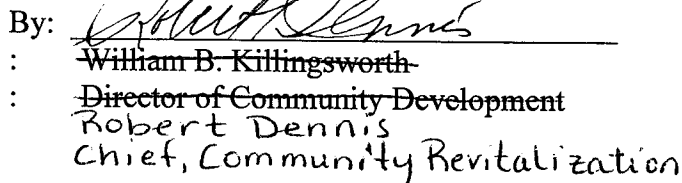 By: Robert Dennis
: William B. Killingsworth
: Director of Community Development
Robert Dennis
Chief, Community Revitalization